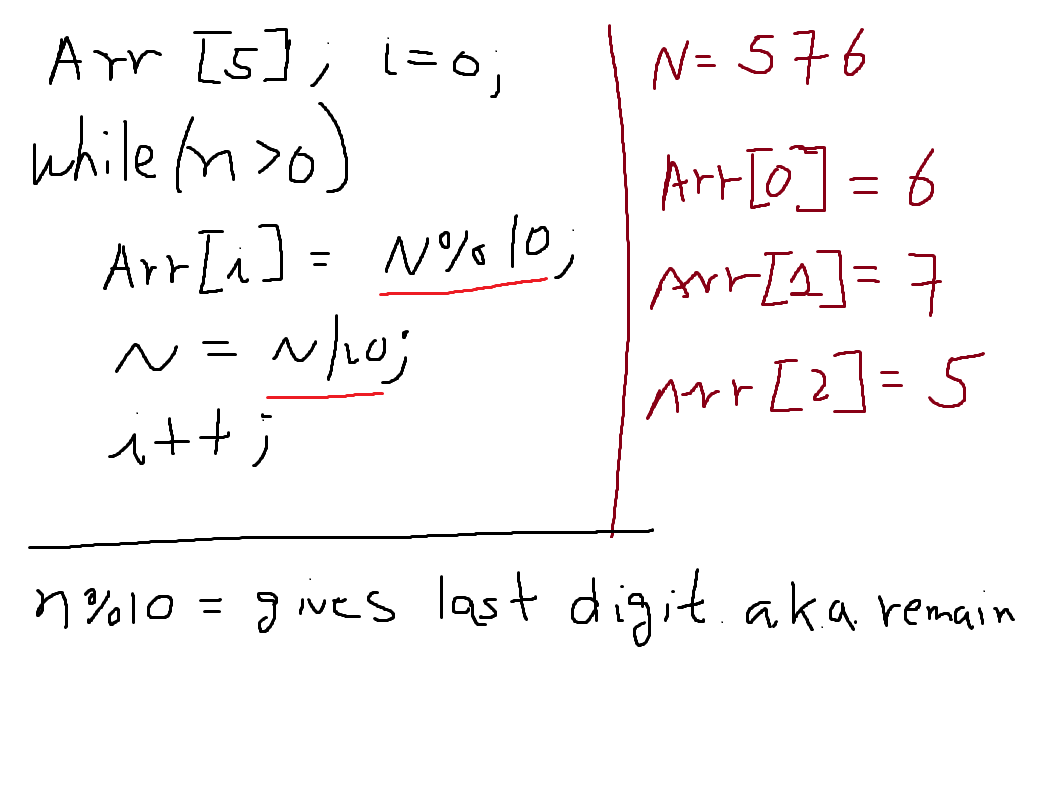 Arr [5], i=0;
while(n>0)
Arr[i] = N%10;
N = N/10;
i++;
N= 576
Arr[0] = 6
Arr[1]= 7
Arr[2]= 5
n%10 = gives last digit a.k.a. remain